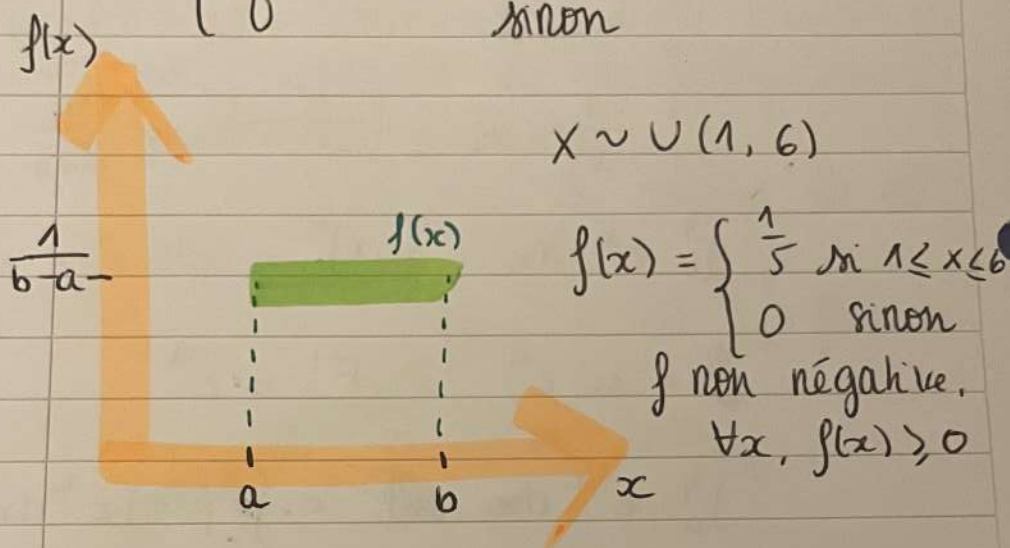 { 0 sinon
f(x)
X ~ U(1, 6)
1/(b-a)
f(x)
f(x) = { 1/5 si 1 ≤ x ≤ 6
0 sinon
f non négative,
∀x, f(x) ≥ 0
a b x